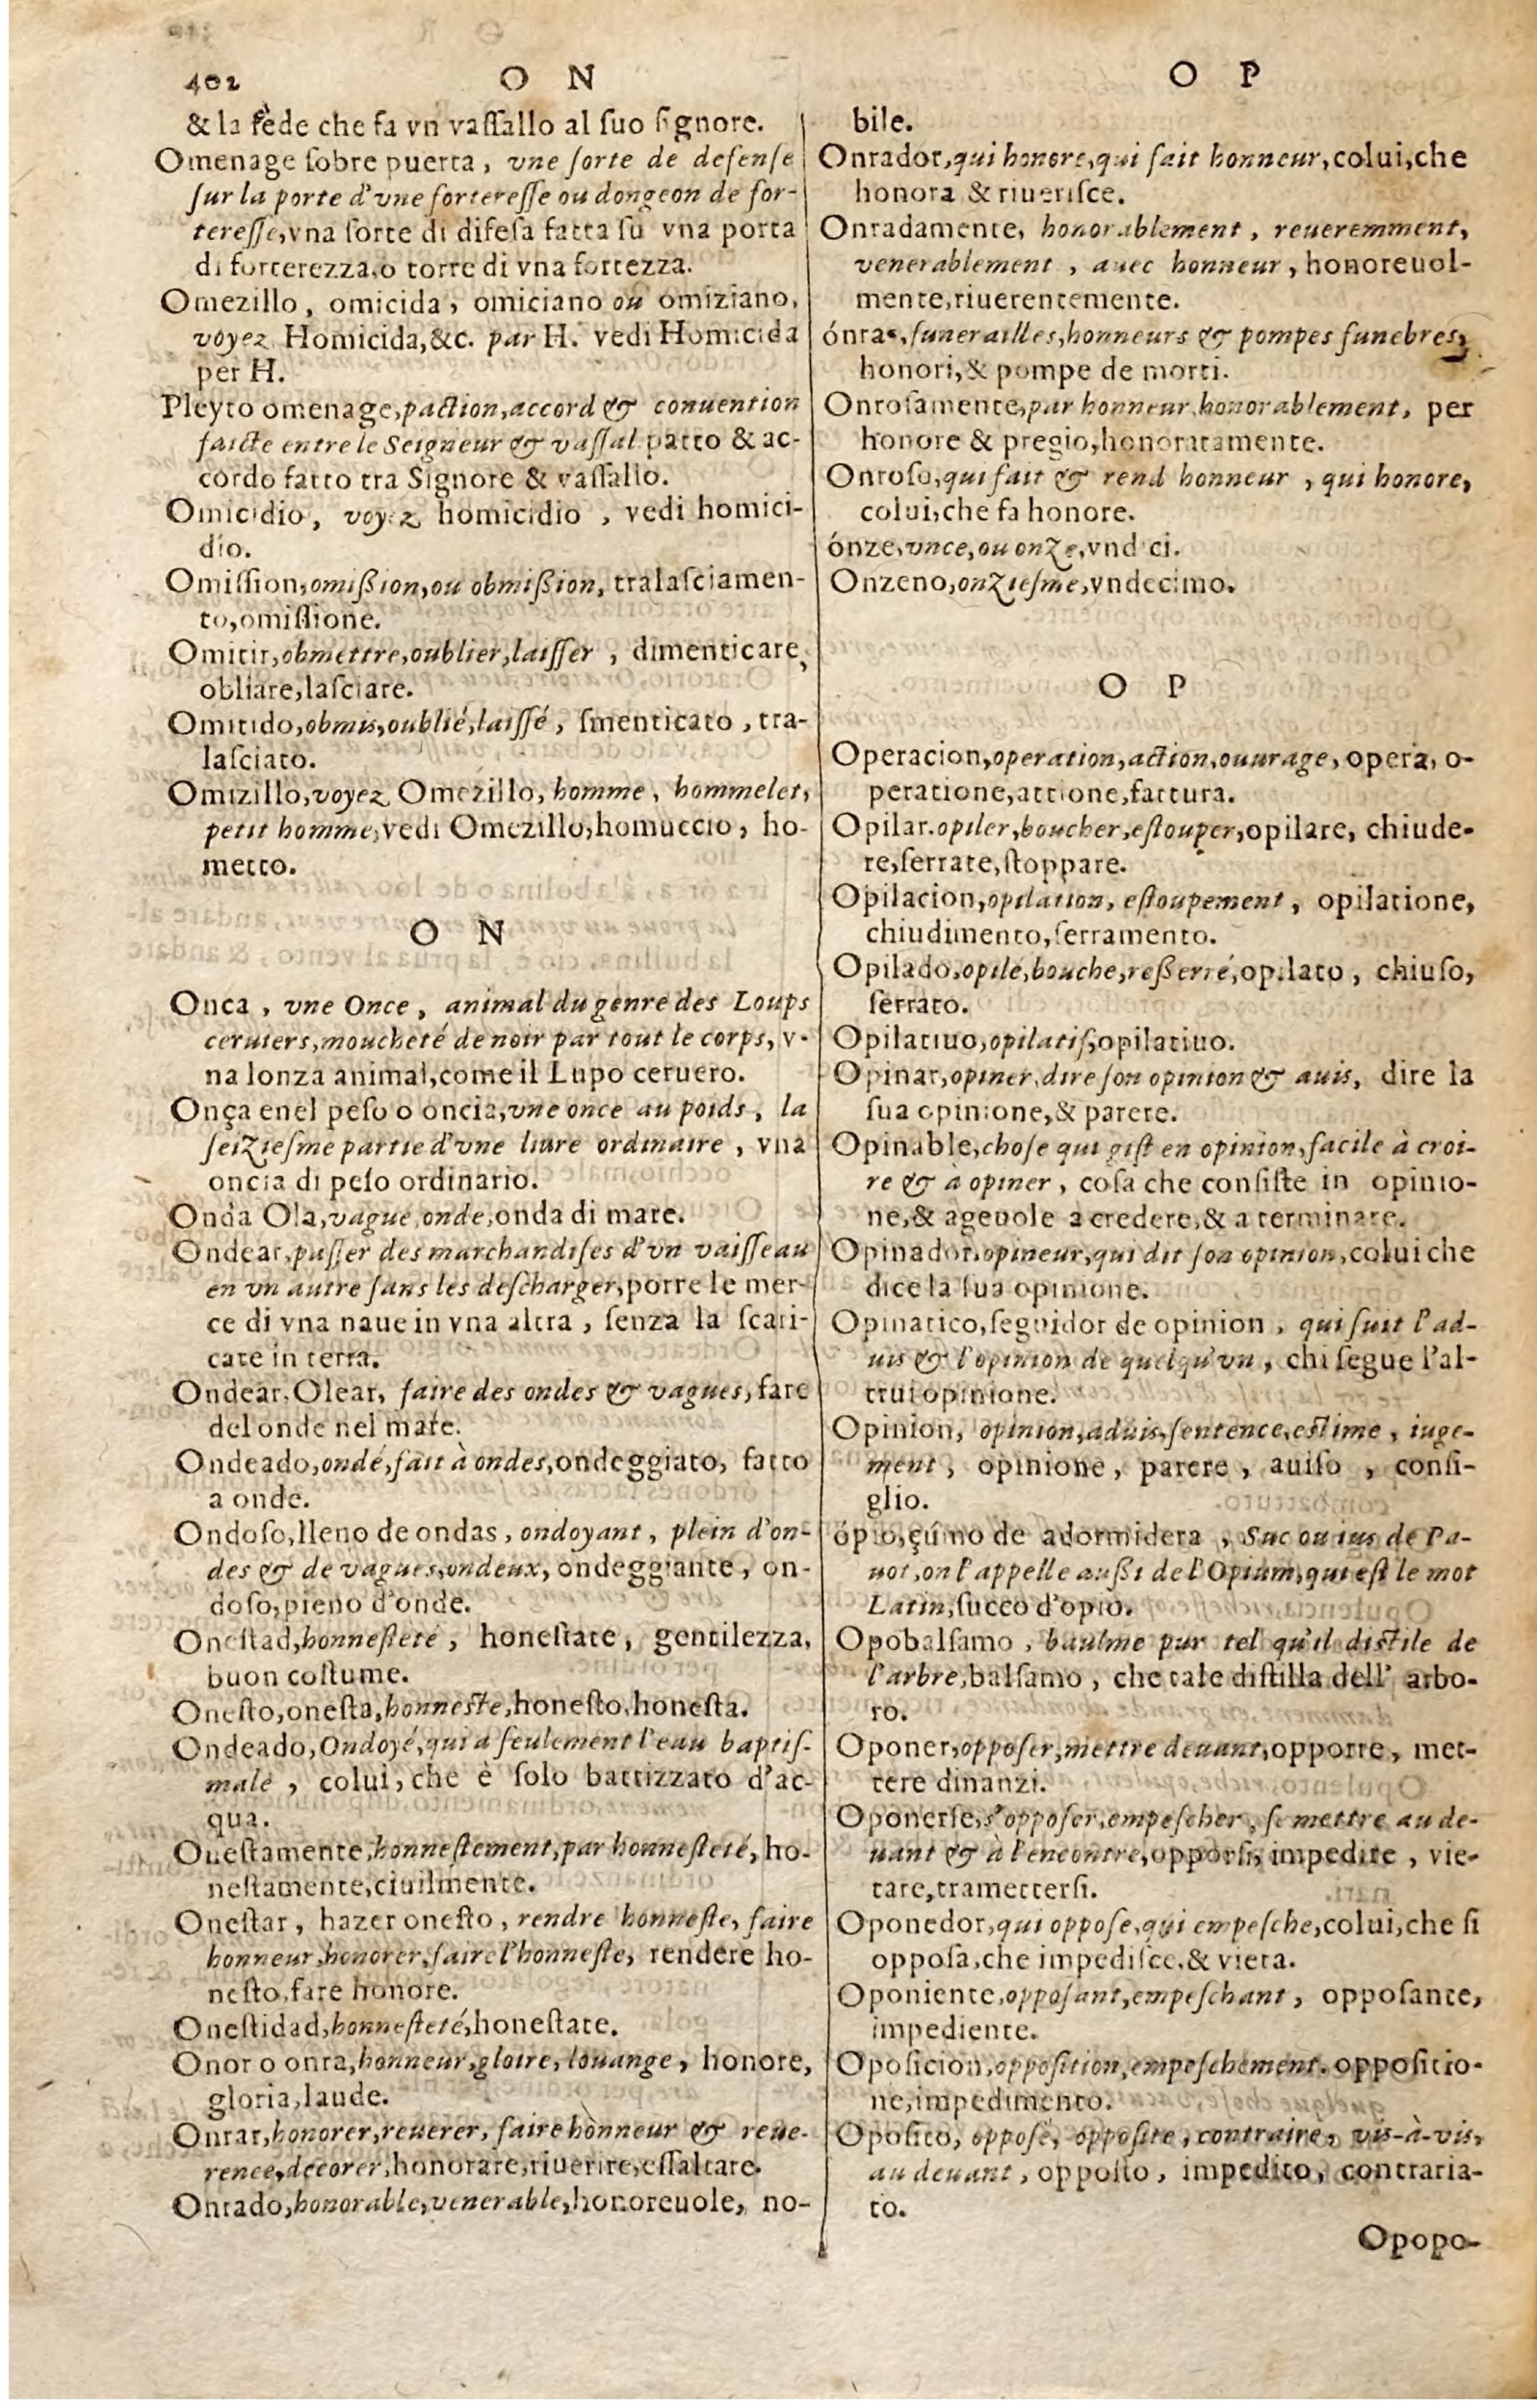 402
O N
& la fede che fa vn vaſſallo al ſuo ſignore.
Omenage ſobre puerta, vne ſorte de defenſe
ſur la porte d'vne fortereſſe ou dongeon de for-
tereſſe, vna ſorte di difeſa fatta ſu vna porta
di forterezza, o torre di vna fortezza.
Omezillo, omicida, omiciano ou omiziano,
voyez Homicida, &c. par H. vedi Homicida
per H.
Pleyto omenage, paction, accord & conuention
faicte entre le Seigneur & vaſſal patto & ac-
cordo fatto tra Signore & vaſſallo.
Omicidio, voyez homicidio, vedi homici-
dio.
Omiſſion, omißion, ou obmißion, tralaſciamen-
to, omiſſione.
Omitir, obmettre, oublier, laiſſer, dimenticare,
obliare, laſciare.
Omitido, obmis, oublié, laiſſé, ſmenticato, tra-
laſciato.
Omizillo, voyez Omezillo, homme, hommelet,
petit homme, vedi Omezillo, homuccio, ho-
metto.
O N
Onca, vne Once, animal du genre des Loups
ceruiers, moucheté de noir par tout le corps, v-
na lonza animal, come il Lupo ceruero.
Onça enel peſo o oncia, vne once au poids, la
ſeizieſme partie d'vne liure ordinaire, vna
oncia di peſo ordinario.
Onda Ola, vague, onde, onda di mare.
Ondear, paſſer des marchandiſes d'vn vaiſſeau
en vn autre ſans les deſcharger, porre le mer-
ce di vna naue in vna altra, ſenza la ſcari-
care in terra.
Ondear, Olear, faire des ondes & vagues, fare
del onde nel mare.
Ondeado, ondé, fait à ondes, ondeggiato, fatto
a onde.
Ondoſo, lleno de ondas, ondoyant, plein d'on-
des & de vagues, ondeux, ondeggiante, on-
doſo, pieno d'onde.
Oneſtad, honneſteté, honeſtate, gentilezza,
buon coſtume.
Oneſto, oneſta, honneſte, honeſto, honeſta.
Ondeado, Ondoyé, qui a ſeulement l'eau baptiſ-
male, colui, che è ſolo battizzato d'ac-
qua.
Oneſtamente, honneſtement, par honneſteté, ho-
neſtamente, ciuilmente.
Oneſtar, hazer oneſto, rendre honneſte, faire
honneur, honorer, faire l'honneſte, rendere ho-
neſto, fare honore.
Oneſtidad, honneſteté, honeſtate.
Onor o onra, honneur, gloire, louange, honore,
gloria, laude.
Onrar, honorer, reuerer, faire honneur & reue-
rence, decorer, honorare, riuerire, eſſaltare.
Onrado, honorable, venerable, honoreuole, no-
O P
bile.
Onrador, qui honore, qui fait honneur, colui, che
honora & riueriſce.
Onradamente, honorablement, reueremment,
venerablement, auec honneur, honoreuol-
mente, riuerentemente.
ónras, funerailles, honneurs & pompes funebres,
honori, & pompe de morti.
Onroſamente, par honneur, honorablement, per
honore & pregio, honoratamente.
Onroſo, qui fait & rend honneur, qui honore,
colui, che fa honore.
ónze, vnce, ou onze, vndici.
Onzeno, onzieſme, vndecimo.
O P
Operacion, operation, action, ouurage, opera, o-
peratione, attione, fattura.
Opilar, opiler, boucher, eſtouper, opilare, chiude-
re, ſerrare, ſtoppare.
Opilacion, opilation, eſtoupement, opilatione,
chiudimento, ſerramento.
Opilado, opilé, bouche, reßerré, opilato, chiuſo,
ſerrato.
Opilatiuo, opilatif, opilatiuo.
Opinar, opiner, dire ſon opinion & auis, dire la
ſua opinione, & parere.
Opinable, choſe qui giſt en opinion, facile à croi-
re & à opiner, coſa che conſiſte in opinio-
ne, & ageuole a credere, & a terminare.
Opinador, opineur, qui dit ſon opinion, colui che
dice la ſua opinione.
Opinatico, ſeguidor de opinion, qui ſuit l'ad-
uis & l'opinion de quelqu'vn, chi ſegue l'al-
trui opinione.
Opinion, opinion, aduis, ſentence, eſtime, iuge-
ment, opinione, parere, auiſo, conſi-
glio.
ópio, çúmo de adormidera, Suc ou ius de Pa-
uot, on l'appelle außi de l'Opium, qui eſt le mot
Latin, ſucco d'opio.
Opobalſamo, baulme pur tel qu'il diſtile de
l'arbre, balſamo, che tale diſtilla dell' arbo-
ro.
Oponer, oppoſer, mettre deuant, opporre, met-
tere dinanzi.
Oponerſe, s'oppoſer, empeſcher, ſe mettre au de-
uant & à l'encontre, opporſi, impedire, vie-
tare, trametterſi.
Oponedor, qui oppoſe, qui empeſche, colui, che ſi
oppoſa, che impediſce, & vieta.
Oponiente, oppoſant, empeſchant, oppoſante,
impediente.
Opoſicion, oppoſition, empeſchement, oppoſitio-
ne, impedimento.
Opoſito, oppoſé, oppoſite, contraire, vis-à-vis,
au deuant, oppoſto, impedito, contraria-
to.
Opopo-